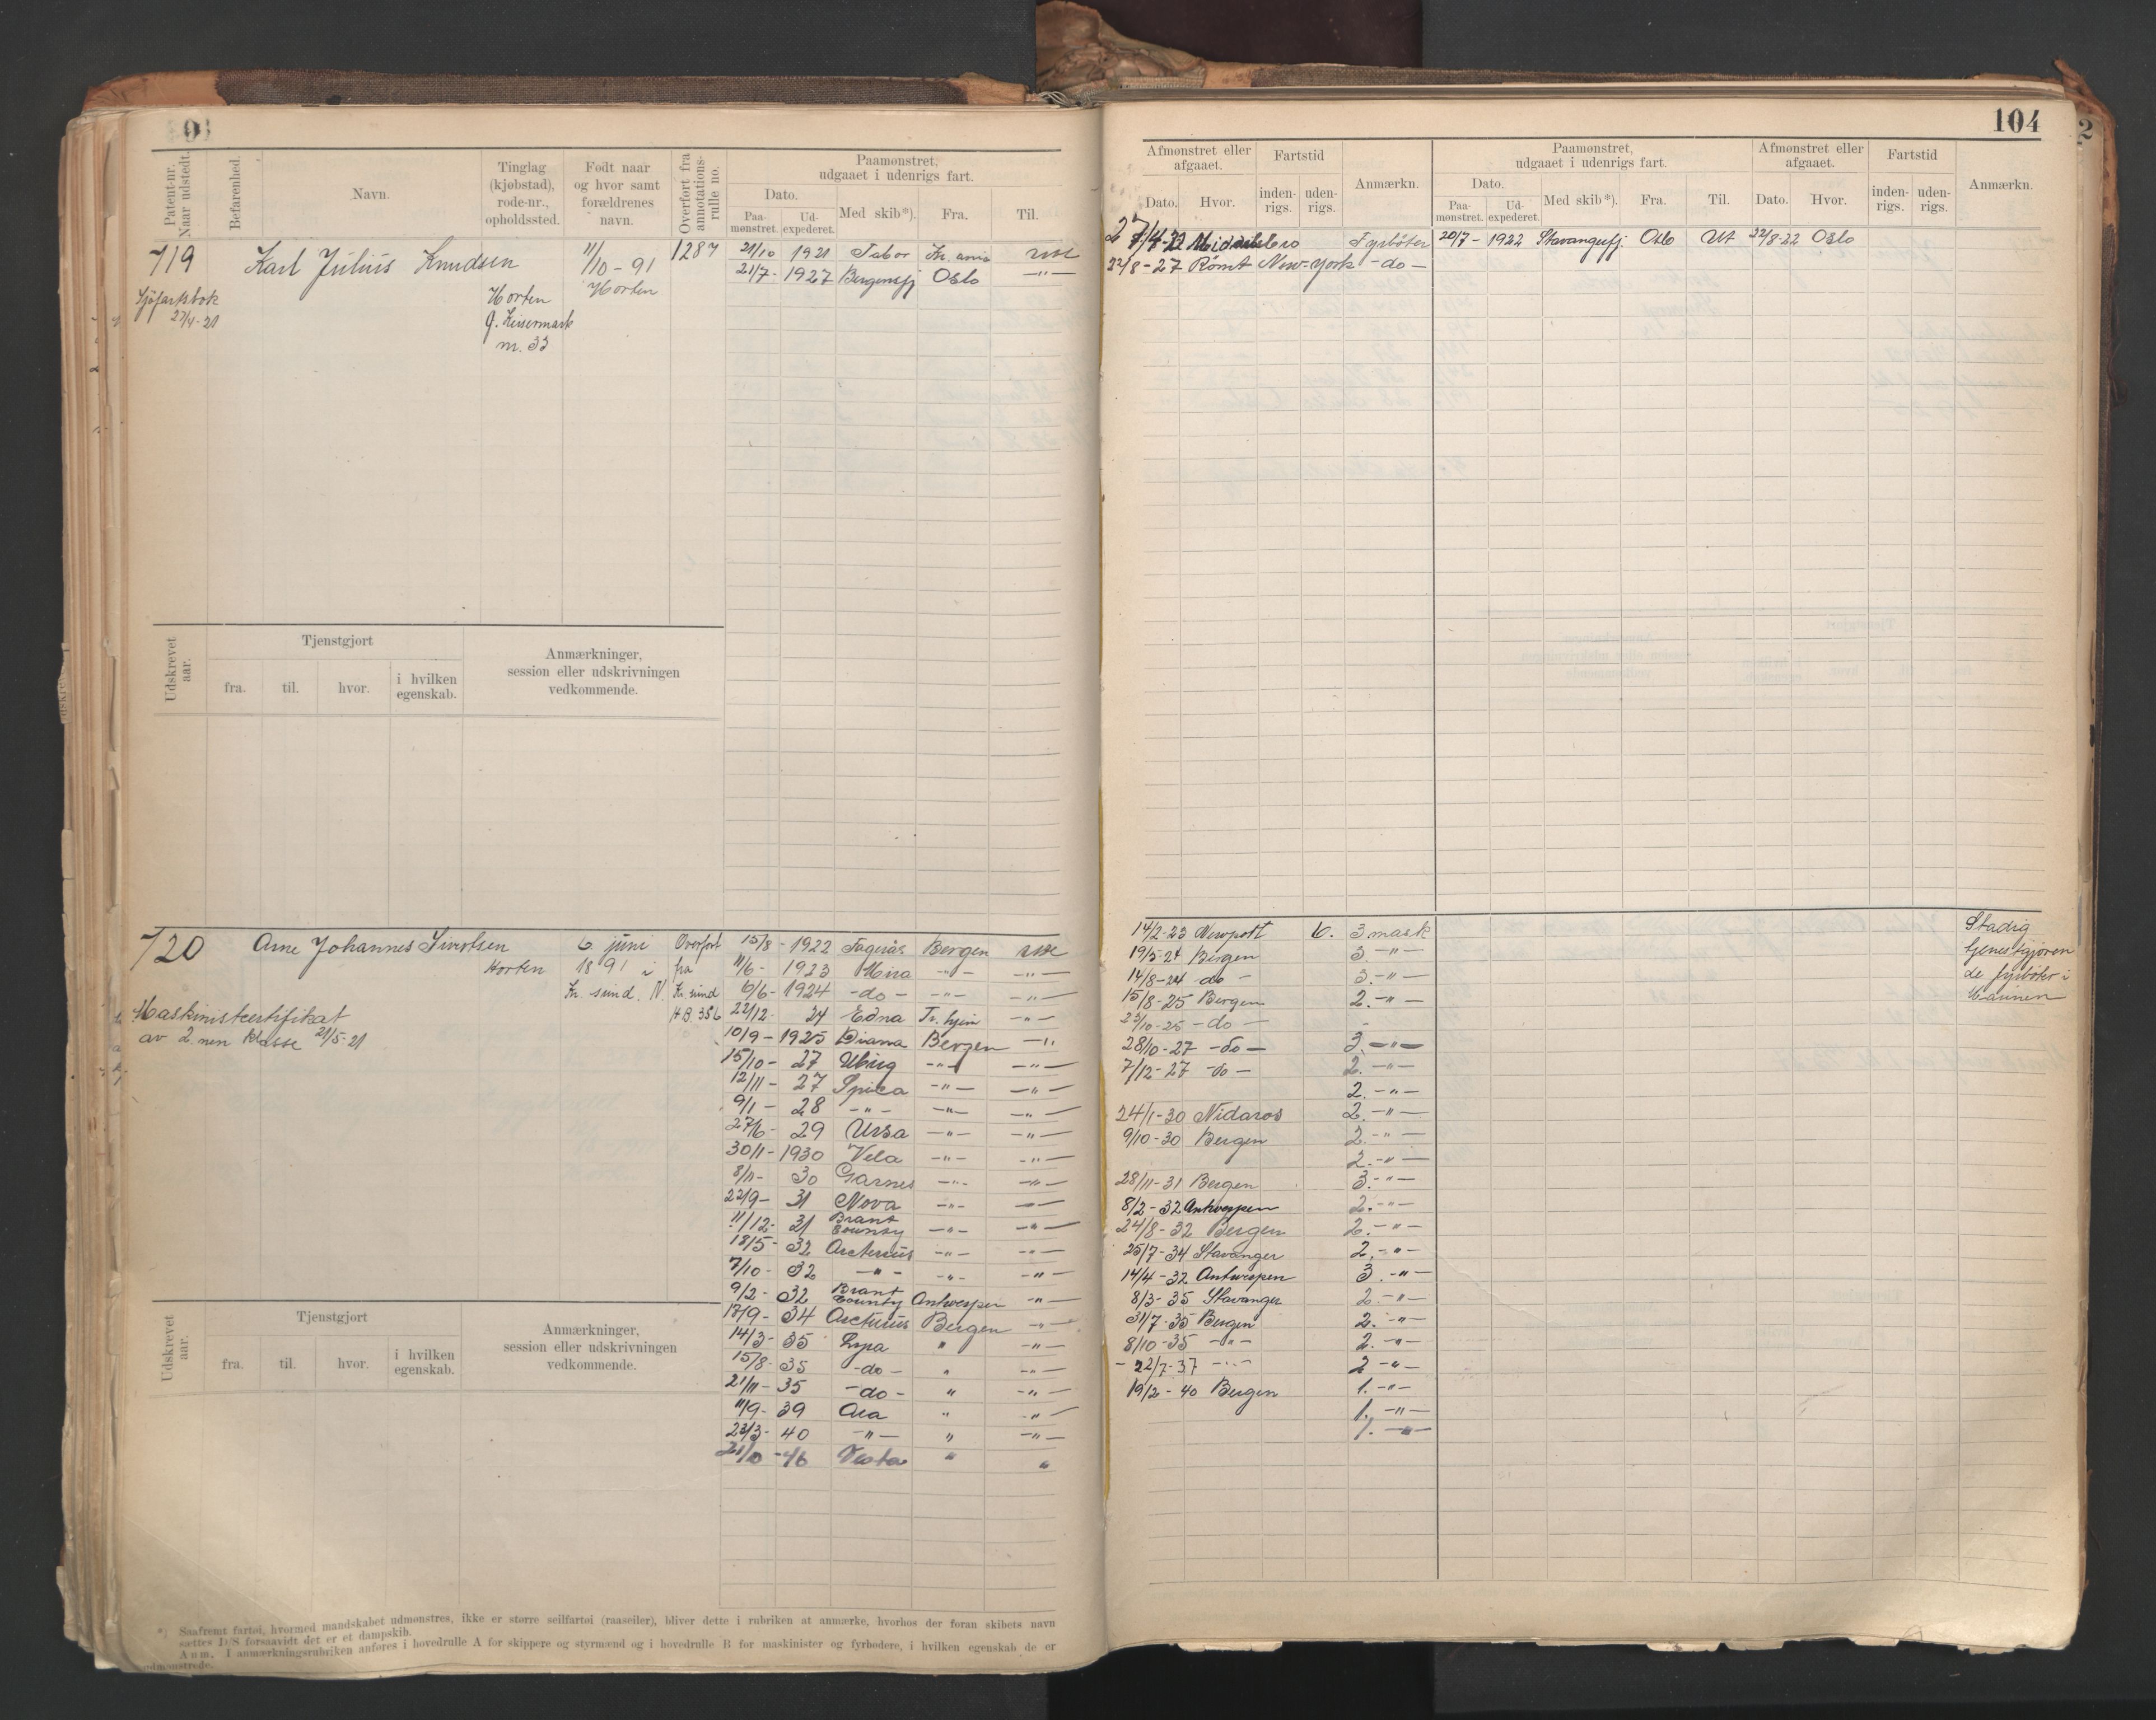 104
Patent-nr. Naar udstedt.
Befarenhed.
Navn.
Tinglag (kjøbstad), rode-nr., opholdssted.
Født naar og hvor samt forældrenes navn.
Overført fra annotations-rulle no.
Paamønstret, udgaaet i udenrigs fart.
Dato.
Paa-mønstret.
Ud-expederet.
Med skib*).
Fra.
Til.
Afmønstret eller afgaaet.
Dato.
Hvor.
Fartstid
inden-rigs.
uden-rigs.
Anmærkn.
Paamønstret, udgaaet i udenrigs fart.
Dato.
Paa-mønstret.
Ud-expederet.
Med skib*).
Fra.
Til.
Afmønstret eller afgaaet.
Dato.
Hvor.
Fartstid
inden-rigs.
uden-rigs.
Anmærkn.
719 Karl Julius Knudsen 11/10-91 1287
Horten
Horten
m. 33
Sjøfartsbok
27/4-21
21/10 1921 Tabor Kr. ania
21/7- 1927 Bergensfj Oslo -"-
27/4-22 Fyrbøter 20/7- 1922 Stavangerfj Oslo Ut 22/8-22 Oslo
22/8-27 Rømt New-York -do-
Udskrevet aar.
Tjenstgjort
fra.
til.
hvor.
i hvilken egenskab.
Anmærkninger, session eller udskrivningen vedkommende.
720 Arne Johannes Sivertsen 6 juni Overført
Horten 1891 i fra
Kr. sund. N. Kr. sund
H.B. 356
Maskinistcertifikat
av 2. nen klasse 21/5-21
15/8-1922 Fagerås Bergen
11/6- 1923 Mira -"- -"-
6/6-1924 -do- -"- -"-
22/12- 24 Edna Tr. hjem -"-
10/9-1925 Diana Bergen -"-
15/10- 27 -"- -"-
12/11- 27 Spica -"- -"-
9/1- 28 -"- -"- -"-
27/6- 29 Ursa -"- -"-
30/1-1930 Vela -"- -"-
8/11- 30 Garnes -"- -"-
22/9- 31 Nova -"- -"-
11/12- 31 Brant County -"- -"-
18/5- 32 Arcturus -"- -"-
7/10- 32 -"- -"- -"-
9/2- 32 Brant County Antwerpen -"-
17/9- 34 Arcturus Bergen -"-
14/3- 35 Lyra " -"-
15/8- 35 -do- " -"-
21/11- 35 -do- " -"-
11/9- 39 Ara " -"-
23/3- 40 -"- " -"-
21/10-46 Vesta " "
14/2-23 Newport 6. 3 mask
19/5-24 Bergen 3. -"-
14/8-24 do - 3. -"-
15/8-25 Bergen 2. -"-
23/10-25 -do-
28/10-27 -do- 3. -"-
7/12-27 -do- 2. -"-
2. -"-
24/1-30 Nidaros 2. -"-
9/10-30 Bergen 2. -"-
2. -"-
28/11-31 Bergen 3. -"-
8/2-32 Antwerpen 2. -"-
24/8-32 Bergen 2. -"-
25/7-34 Stavanger 2. -"-
14/4-32 Antwerpen 3. -"-
8/3-35 Stavanger 2. -"-
31/7-35 Bergen 2. -"-
8/10-35 -"- 2. -"-
22/7-37 -"- 2 -"-
19/2-40 Bergen 1. -"-
1. -"-
1. -"-
Stadig
tjenestgjøren
de fyrbøter i
Marinen
Udskrevet aar.
Tjenstgjort
fra.
til.
hvor.
i hvilken egenskab.
Anmærkninger, session eller udskrivningen vedkommende.
*) Saafremt fartøi, hvormed mandskabet udmønstres, ikke er større seilfartøi (raaseiler), bliver dette i rubriken at anmærke, hvorhos der foran skibets navn
sættes D/S forsaavidt det er et dampskib.
Anm. I anmærkningsrubriken anføres i hovedrulle A for skippere og styrmænd og i hovedrulle B for maskinister og fyrbødere, i hvilken egenskab de er
udmønstrede.